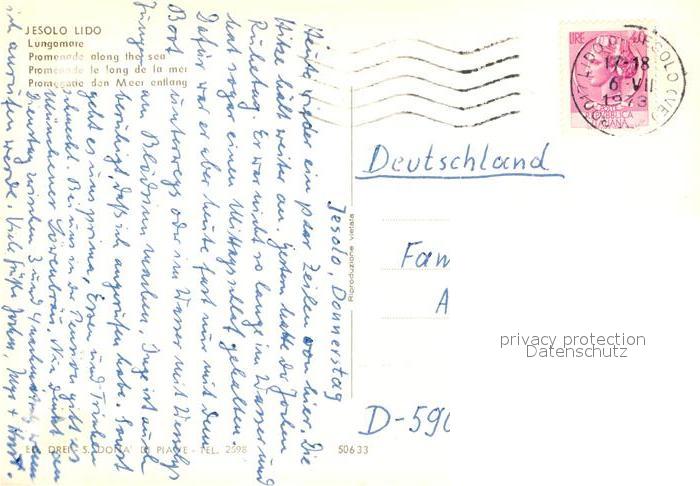 JESOLO LIDO
Lungomare
Promenade along the sea
Promenade le long de la mer
Promenade den Meer entlang
Jesolo, Donnerstag
Heute wieder ein paar Zeilen von hier. Die
Hitze hält weiter an. Gestern hatte der Jochen
Ruhetag. Er war nicht so lange im Wasser und
hat sogar einen Mittagsschlaf gehalten.
Dafür war er aber heute fast nur mit dem
Boot unterwegs oder im Wasser mit
Jungen am Blödsinn machen. Inge ist auch
beruhigt, daß ich angerufen habe. Sonst
geht es uns prima, Essen und Trinken
schmeckt. Bei uns in der Pension gibt es
Münchener Löwenbräu. Also denkt an
Dienstag zwischen 3 und 4 nachmittag wenn
ich anrufen werde. Viele Grüße Jochen, Inge + Horst.
LIRE
REPUBBLICA
ITALIANA
LIDO DI JESOLO (VE)
17-18
6 VII
1973
Deutschland
Fam
A
D-590
Riproduzione vietata
privacy protection
Datenschutz
ED. DREI - S. DONA' DI PIAVE - TEL. 2598
50633